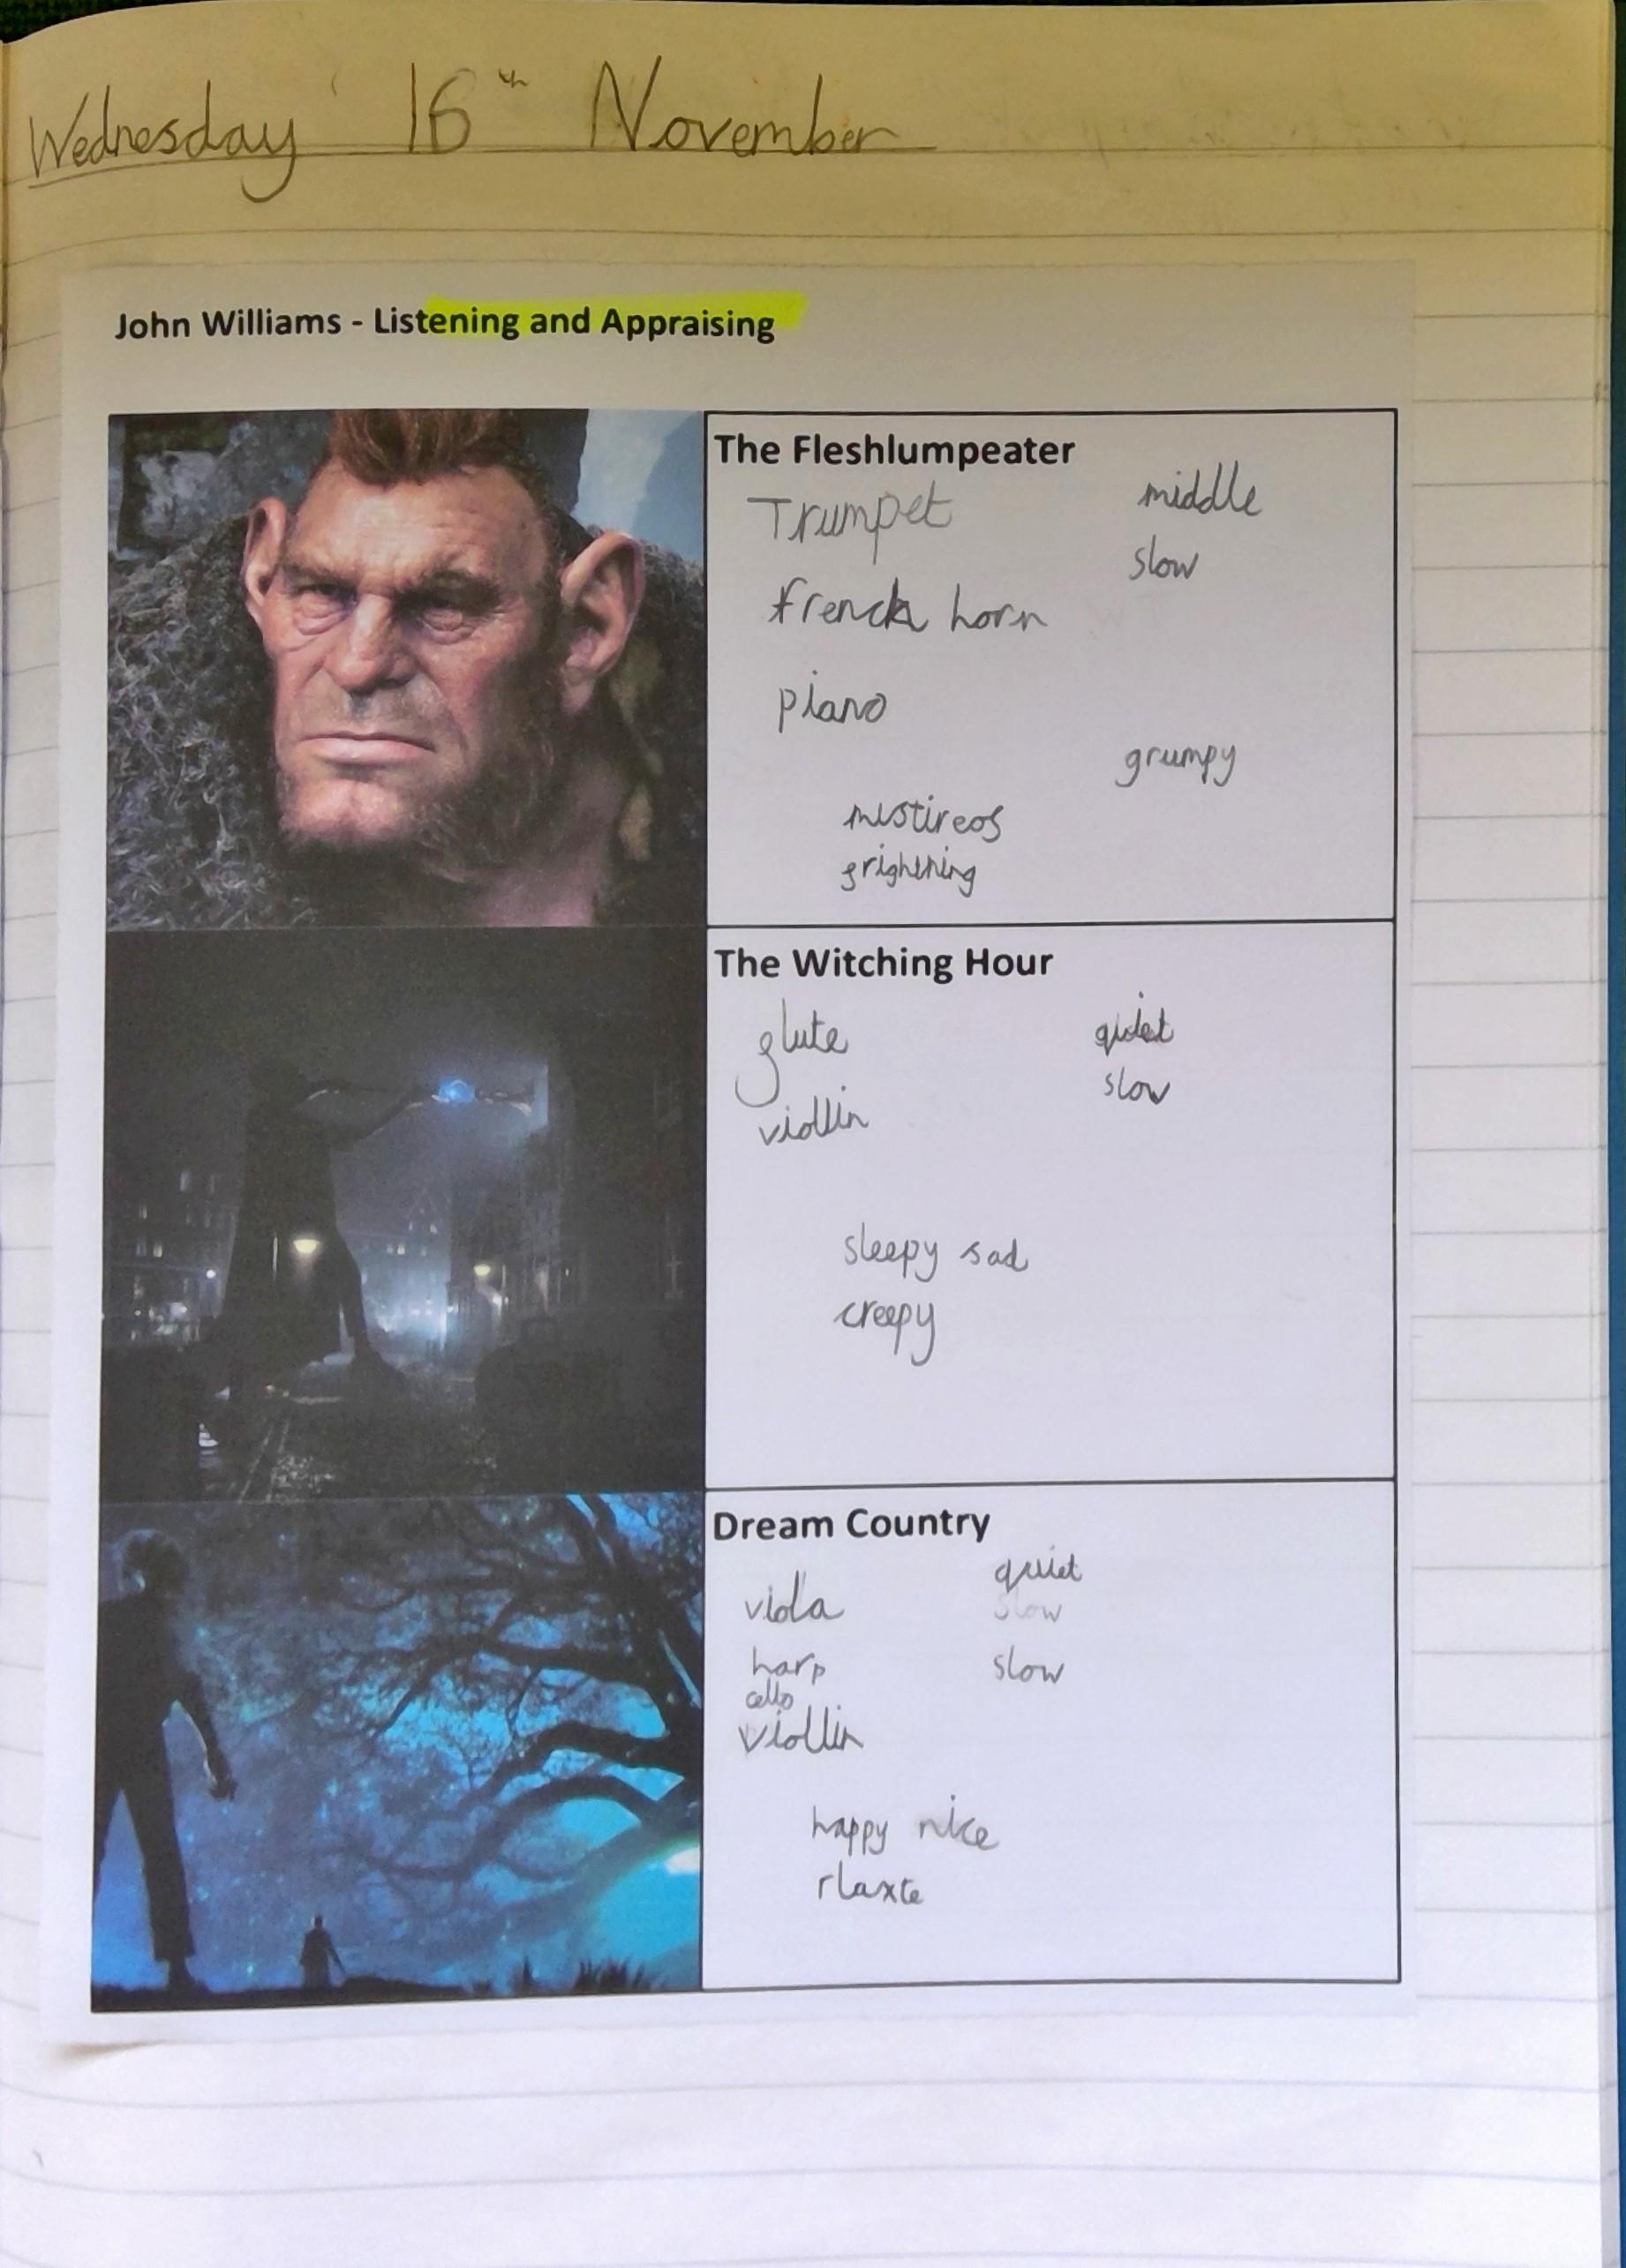 Wednesday 16th November
John Williams - Listening and Appraising
The Fleshlumpeater
Trumpet
middle
slow
french horn
piano
grumpy
mistireos
frightning
The Witching Hour
flute
quiet
slow
viollin
sleepy sad
creepy
Dream Country
quiet
viola
slow
harp
slow
cello
viollin
happy nice
rlaxte